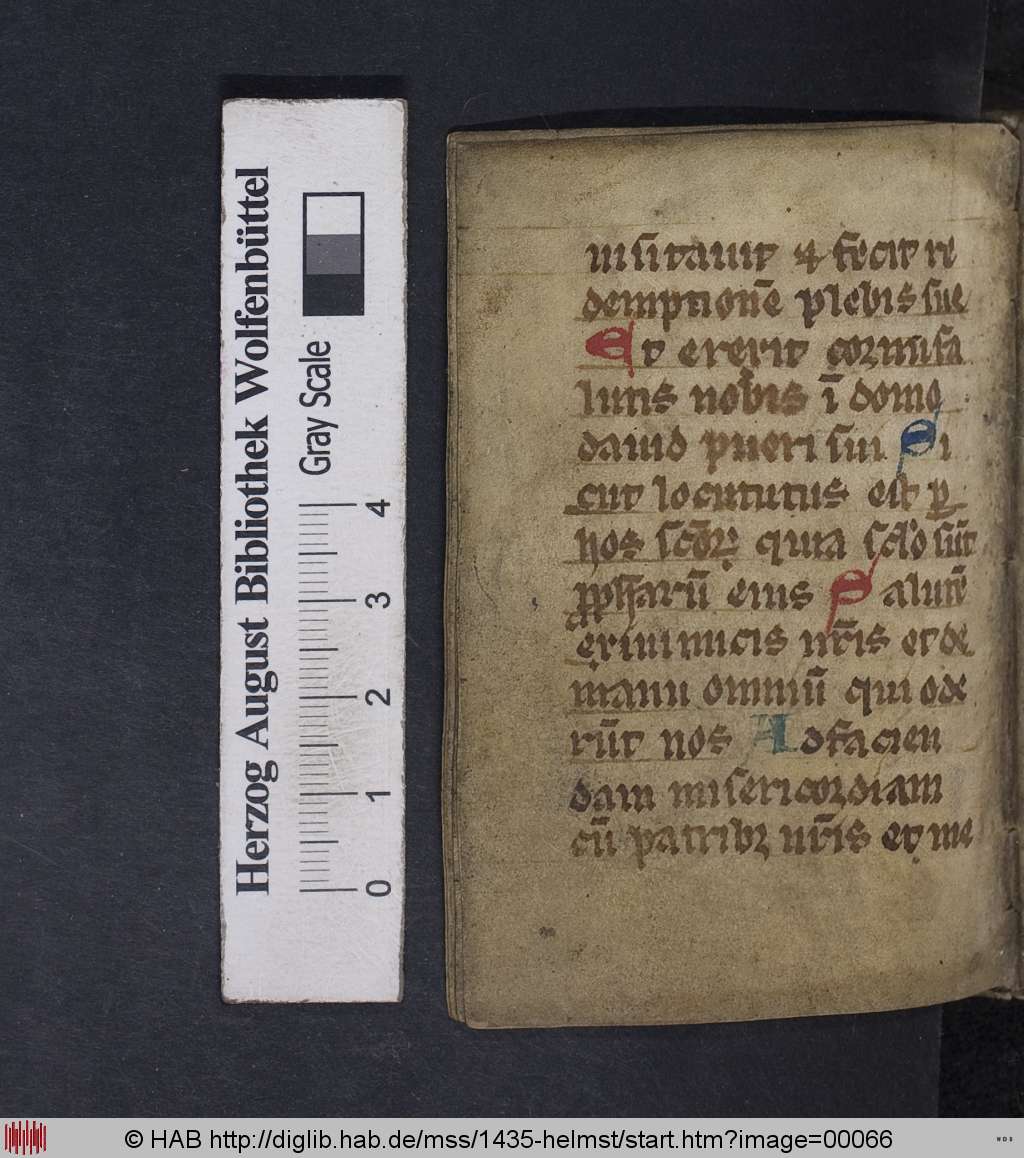 Herzog August Bibliothek Wolfenbüttel
Gray Scale
0 1 2 3 4
uisitauit & fecit re
demptionē plebis sue
Et erexit cornu sa
lutis nobis ī domo
dauid pueri sui Si
cut locutus est
quia sclo sūt
eius Salutē
ex inimicis nr̄is et de
manu omniū qui ode
rūt nos Ad facien
dam misericordiam
cū patribꝫ nr̄is et me
© HAB http://diglib.hab.de/mss/1435-helmst/start.htm?image=00066